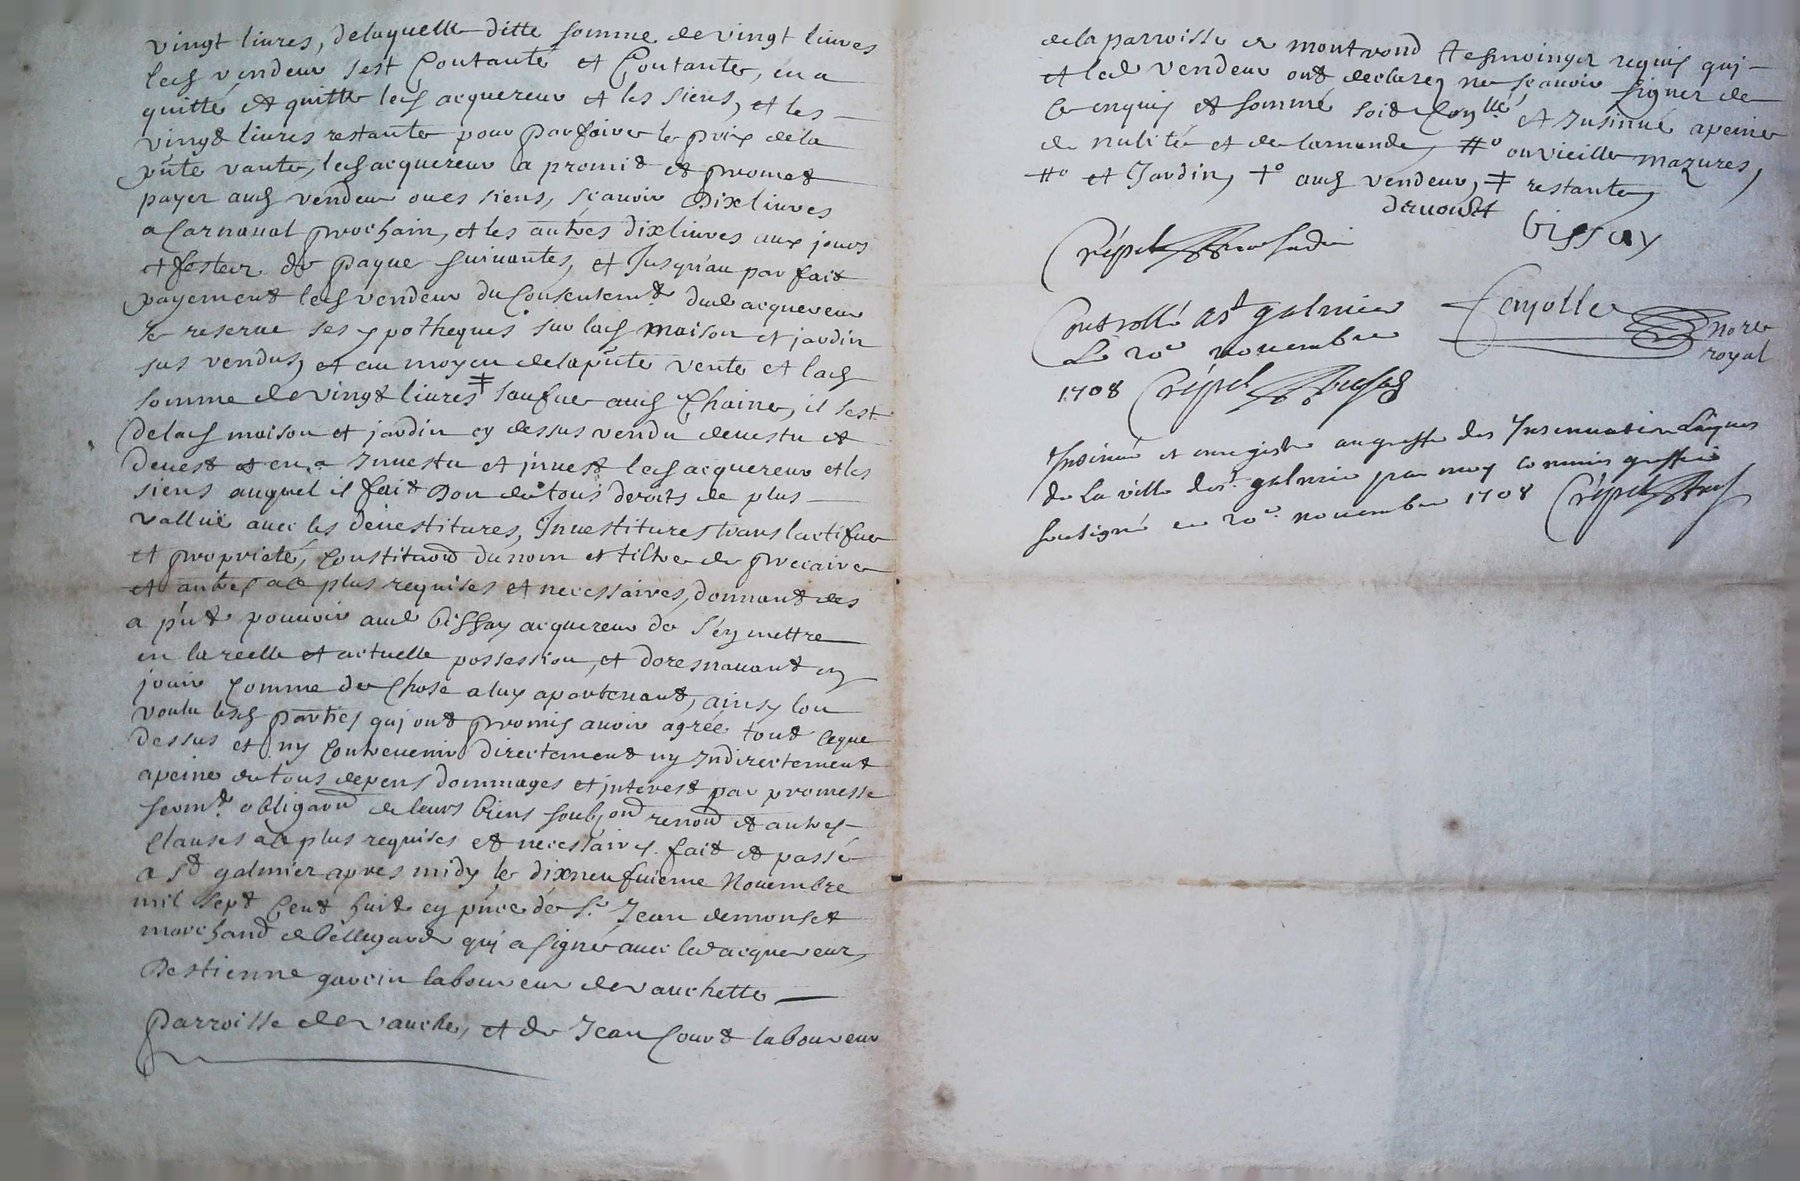 vingt livres, delaquelle ditte somme de vingt livres
led vendeur sest Contanté et Contante, en a
quitté et quitte led acquereur et les siens, et les
vingt livres restante pour parfaire le prix dela
pnte vante, led acquereur a promit et promet
payer aud vendeur ou es siens, sçavoir Dix livres
a Carnaval prochain, et les autres dix livres aux jours
et festes de paque suivantes, et Jusqu'au parfait
payement led vendeur du Consentemt dud acquereur
se reserve ses ypotheques sur lad maison et jardin
sus vendus, et au moyen dela pnte vente et lad
somme de vingt livres ‡ sauf aud Chaine, il sest
delad maison et jardin cy dessus vendu devestu et
devest et en a Investu et jnvest led acquereur et les
siens auquel il fait Don de tous droits de plus
vallüe avec les devestitures, Investitures translactifve
et proprieté, Constitaon du nom et tiltre de precaire
et autres ace plus requises et necessaires, donnant des
a pnt pouvoir aud bissay acquereur de s'ey mettre
en la reelle et actuelle possession, et doresnavant ey
jouir Comme de Chose a luy apartenant, ainsy lon
voulu lesd parties quj ont promis avoir agréé tout Ceque
dessus et ny Contrevenir directement ny Indirectement
apeine de tous depens dommages et jnterest par promesse
sermt obligaon de leurs biens soubjon renon et autres
Clauses ace plus requises et necessaires. fait et passé
a St galmier apres midy le dixneufvieme Novembre
mil sept Cent huit ey pnce de Sr Jean demonset
marchand de bellegarde quj a signé avec led acquereur,
Destienne garcin laboureur de vauchette
parroisse de vauche, et de Jean Court laboureur
dela parroisse de montrond tesmoingst requis quj
et led vendeur ont declarey ne sçavoir signer de
Ce enquis et sommé soit Conllé et Insinué apeine
de nulité et de lamande, #o ou vieille mazures,
#o et Jardin, +o aud vendeur, ‡ restante,
demonset bissay
Crépet
Controllé a St galmier
Le 20e novembre
1708 Crépet
Cayolle nore
royal
Insinué et enregistré au greffe des Insinuation Laiques
de La ville de St galmier par moy commis greffier
sousigné ce 20e novembre 1708 Crépet